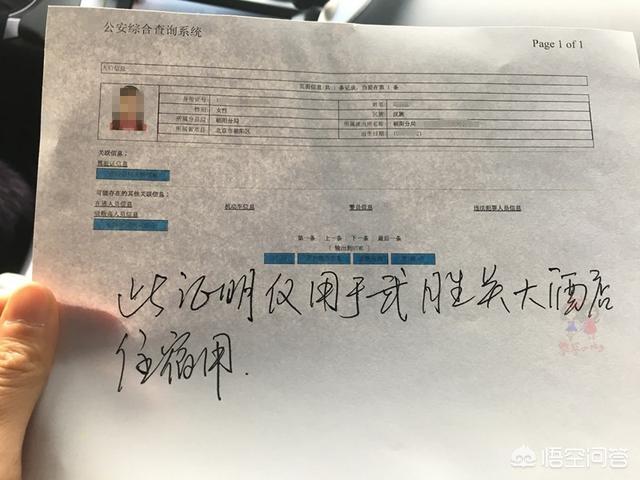 公安综合查询系统
Page 1 of 1
人口信息
页面信息 共 1 条记录,当前在第 1 条
身份证号: 姓名
性别: 女性 民族 汉族
所属分县局 朝阳分局 朝阳分局
所属省市县 北京市朝阳区 出生日期
关联信息:
可能存在的其他关联信息:
在逃人员信息 机动车信息 警员信息 违法犯罪人员信息
第一条 上一条 下一条 最后一条
此证明仅用于武胜关大酒店
住宿用.
悟空问答